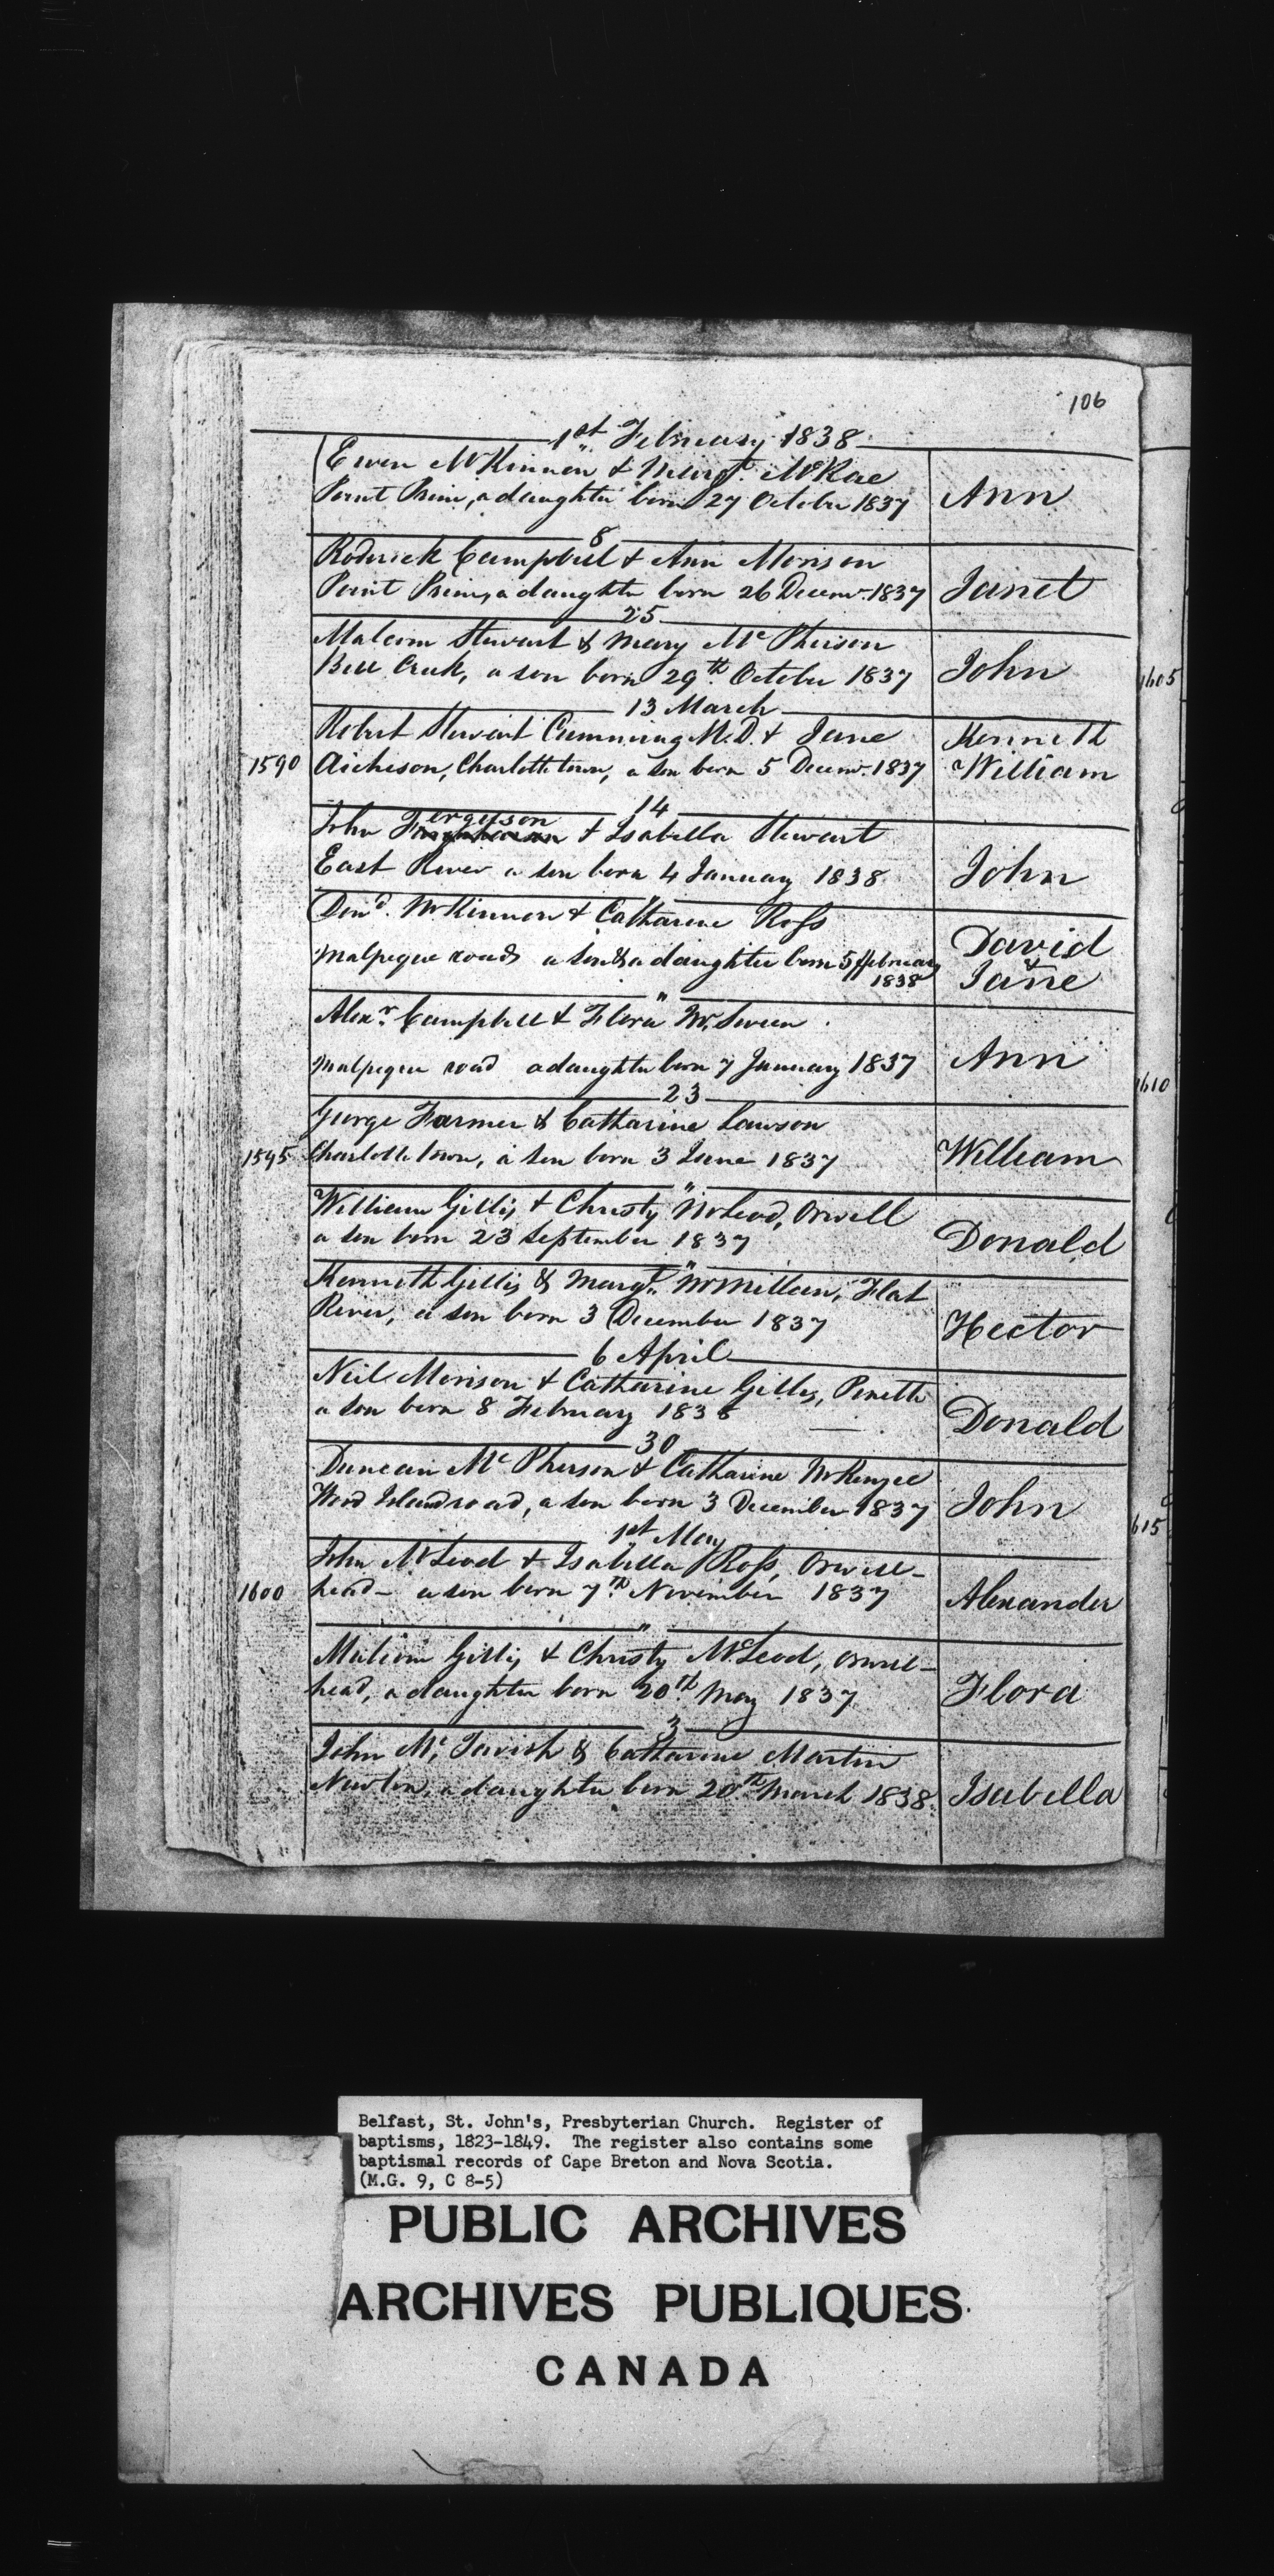 106
1st February 1838
Ewen McKinnon & Margt. McRae
Point Prim, a daughter born 27 October 1837
Ann
8
Roderick Campbell & Ann Morison
Point Prim, a daughter born 26 Decemr. 1837
Janet
25
Malcom Stewart & Mary McPherson
Bell Creek, a son born 29th October 1837
John
1605
13 March
Robert Stewart Cumming M.D. & Jane
Kenneth
1590 Aicheson, Charlottetown, a son born 5 Decemr. 1837
William
14
John Ferguson & Isabella Stewart
East River a son born 4 January 1838
John
"
Dond. McKinnon & Catharine Ross
Malpeque road a son & a daughter born 5 february
1838
David
&
Jane
"
Alexr. Campbell & Flora McSween
Malpeque road a daughter born 7 January 1837
Ann
1610
23
George Farmer & Catharine Lawson
1595 Charlottetown, a son born 3 June 1837
William
"
William Gillis & Christy McLeod, Orwell
a son born 23 September 1837
Donald
"
Kenneth Gillis & Margt. McMillan, Flat
River, a son born 3 December 1837
Hector
6 April
Neil Morison & Catharine Gillis, Pinette
a son born 8 February 1838
Donald
30
Duncan McPherson & Catharine McKenzie
Wood Island road, a son born 3 December 1837
John
615
1st May
John McLeod & Isabella Ross, Orwell-
1600 head- a son born 7th November 1837
Alexander
"
Malcom Gillis & Christy McLeod, Orwell-
head, a daughter born 20th May 1837
Flora
3
John McTavish & Catharine Martin
Newton, a daughter born 20th March 1838.
Isabella
Belfast, St. John's, Presbyterian Church. Register of
baptisms, 1823-1849. The register also contains some
baptismal records of Cape Breton and Nova Scotia.
(M.G. 9, C 8-5)
PUBLIC ARCHIVES
ARCHIVES PUBLIQUES
CANADA